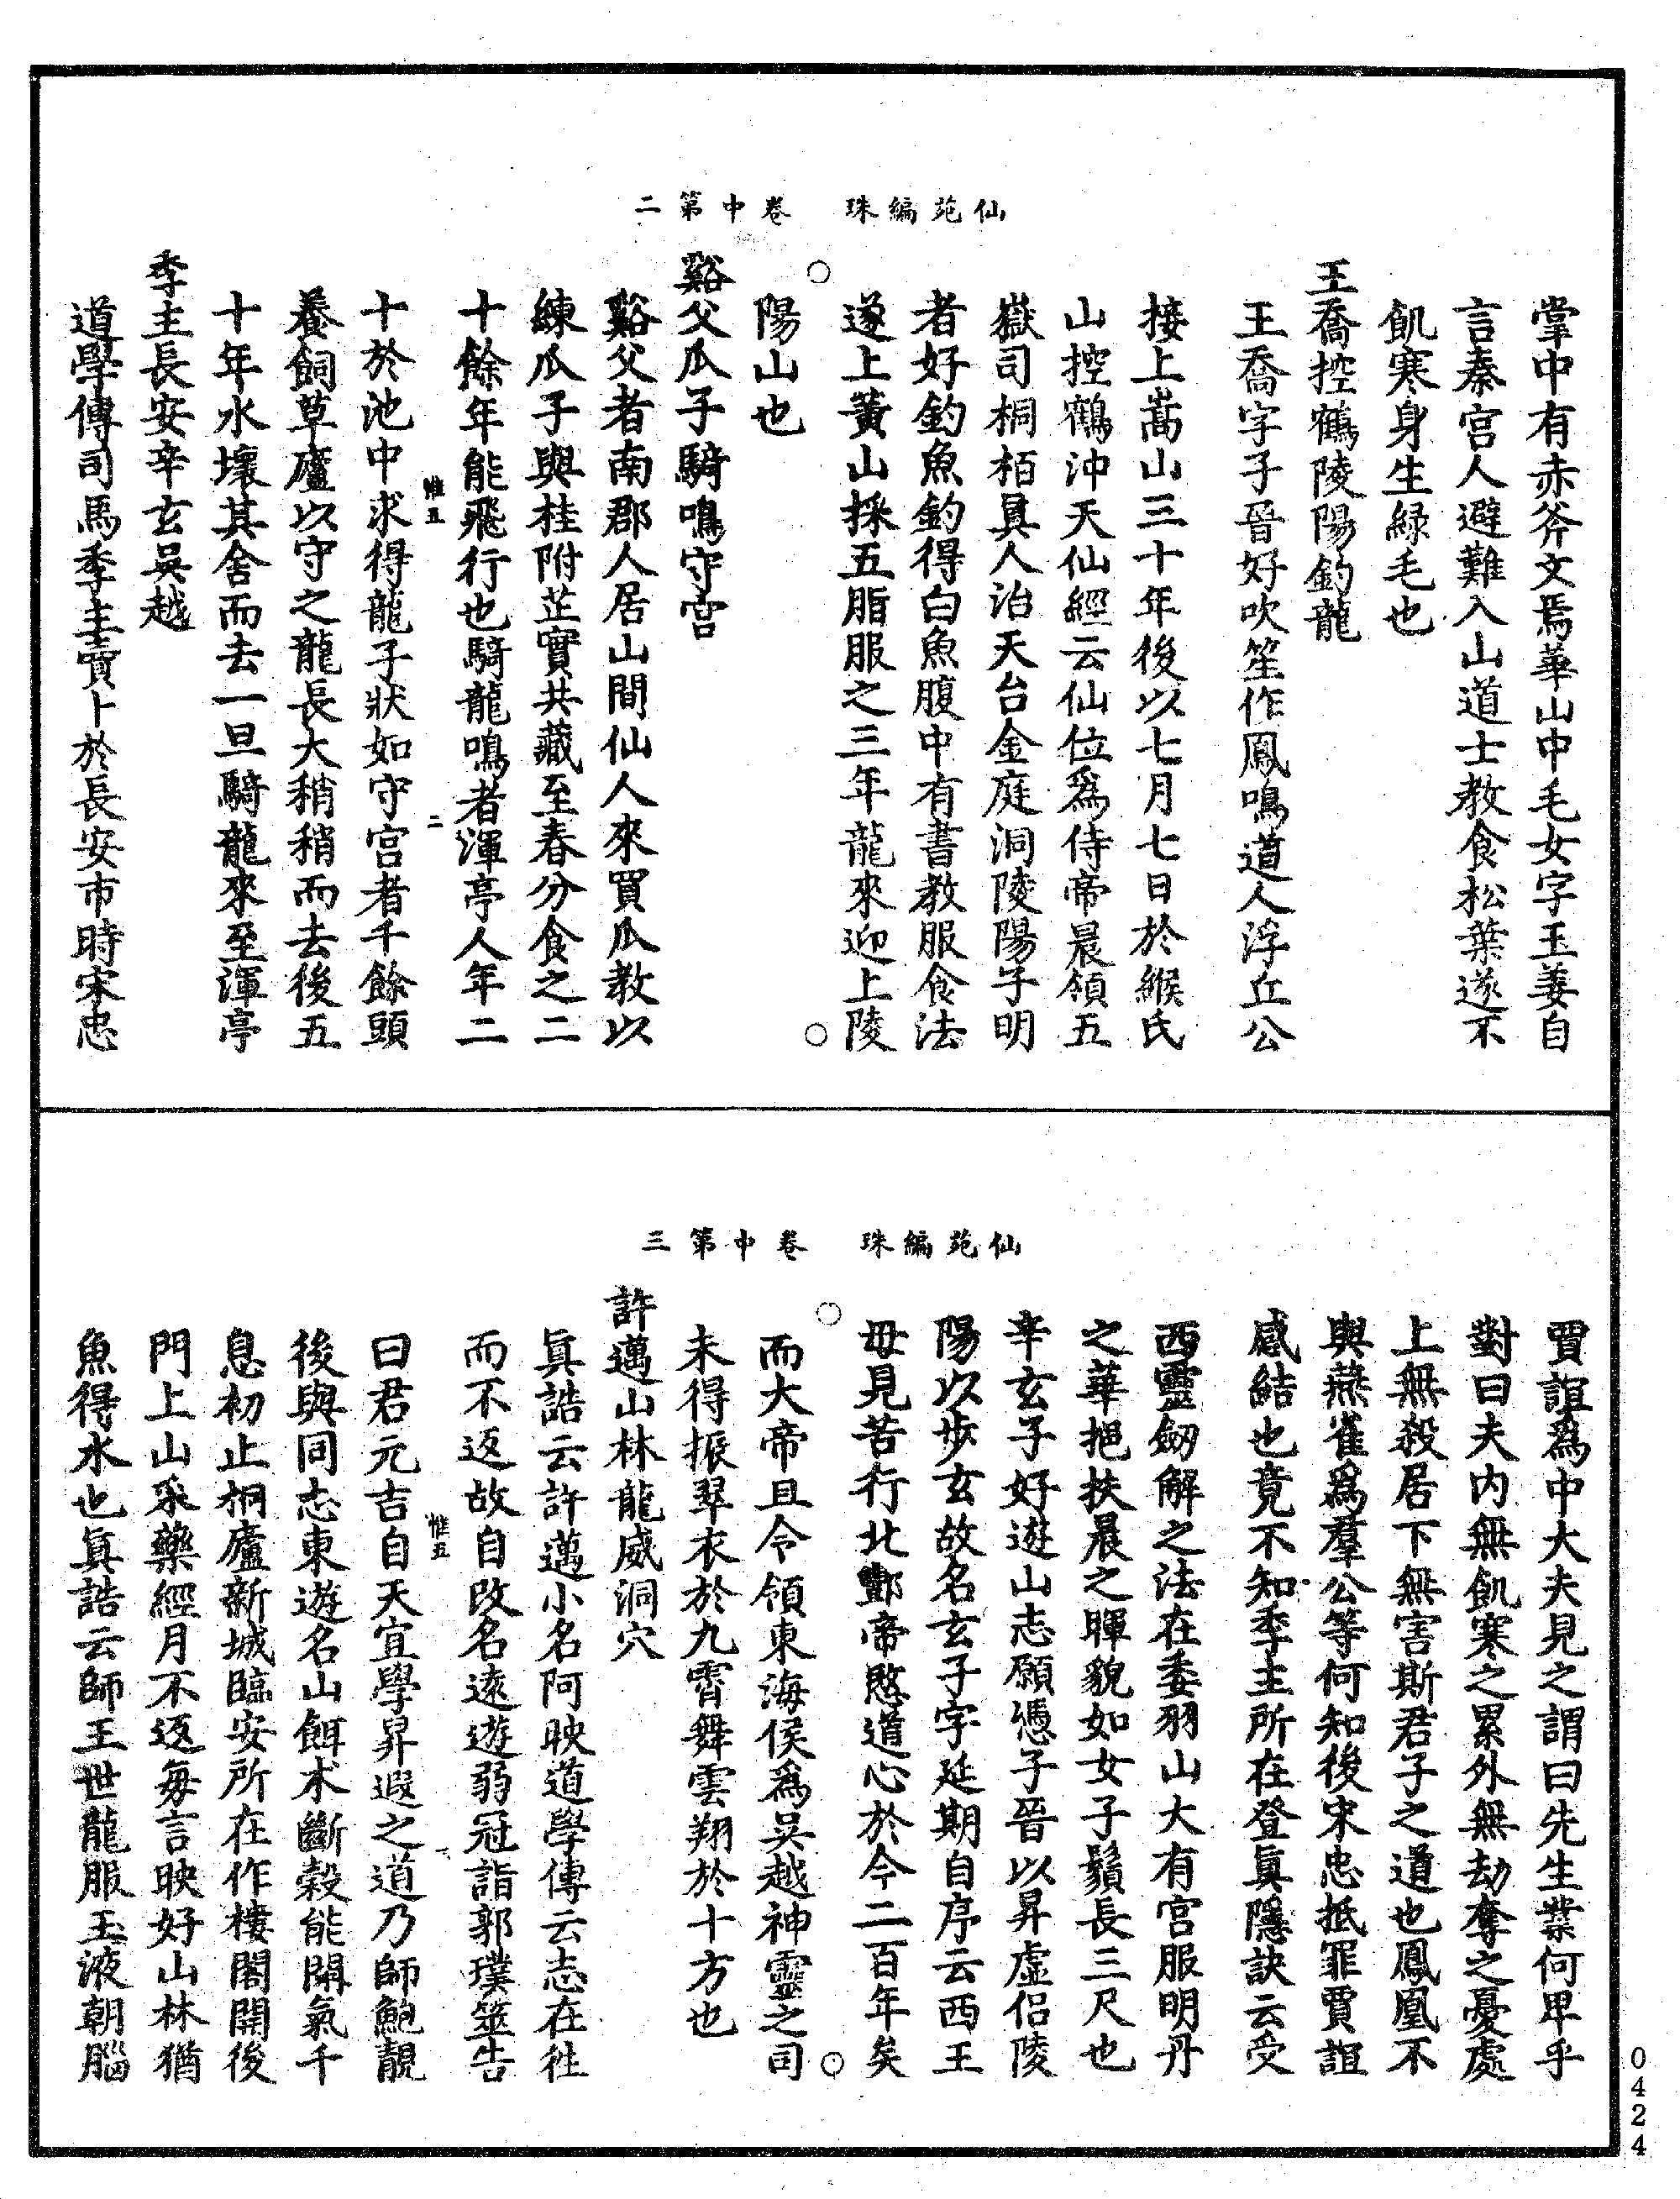 仙苑編珠　卷中第二
掌中有赤斧文焉華山中毛女字玉姜自
言秦宮人避難入山道士教食松葉遂不
飢寒身生緑毛也
王喬控鶴陵陽釣龍
王喬字子晉好吹笙作鳳鳴道人浮丘公
接上嵩山三十年後以七月七日於緱氏
山控鶴沖天仙經云仙位爲侍帝晨領五
嶽司桐栢眞人治天台金庭洞陵陽子明
者好釣魚釣得白魚腹中有書教服食法
遂上黃山採五脂服之三年龍來迎上陵
陽山也
谿父瓜子騎鳴守宮
谿父者南郡人居山間仙人來買瓜教以
練瓜子與桂附芷實共藏至春分食之二
十餘年能飛行也騎龍鳴者渾亭人年二
惟五　二
十於池中求得龍子狀如守宮者千餘頭
養飼草廬以守之龍長大稍稍而去後五
十年水壞其舍而去一旦騎龍來至渾亭
季主長安辛玄吳越
道學傳司馬季主賣卜於長安市時宋忠
仙苑編珠　卷中第三
賈誼爲中大夫見之謂曰先生業何卑乎
對曰夫内無飢寒之累外無劫奪之憂處
上無殺居下無害斯君子之道也鳳凰不
與燕雀爲羣公等何知後宋忠抵罪賈誼
感結也竟不知季主所在登眞隱訣云受
西靈劒解之法在委羽山大有宮服明丹
之華挹扶晨之暉貌如女子鬚長三尺也
辛玄子好遊山志願憑子晉以昇虛侣陵
陽以步玄故名玄子字延期自序云西王
母見苦行北酆帝愍道心於今二百年矣
而大帝且令領東海侯爲吳越神靈之司
未得振翠衣於九霄舞雲翔於十方也
許邁山林龍威洞穴
眞誥云許邁小名阿映道學傳云志在往
而不返故自改名遠遊弱冠詣郭璞筮告
惟五
曰君元吉自天宜學昇遐之道乃師鮑靚
後與同志東遊名山餌术斷穀能閉氣千
息初止桐廬新城臨安所在作樓閣開後
門上山采藥經月不返每言映好山林猶
魚得水也眞誥云師王世龍服玉液朝腦
0424